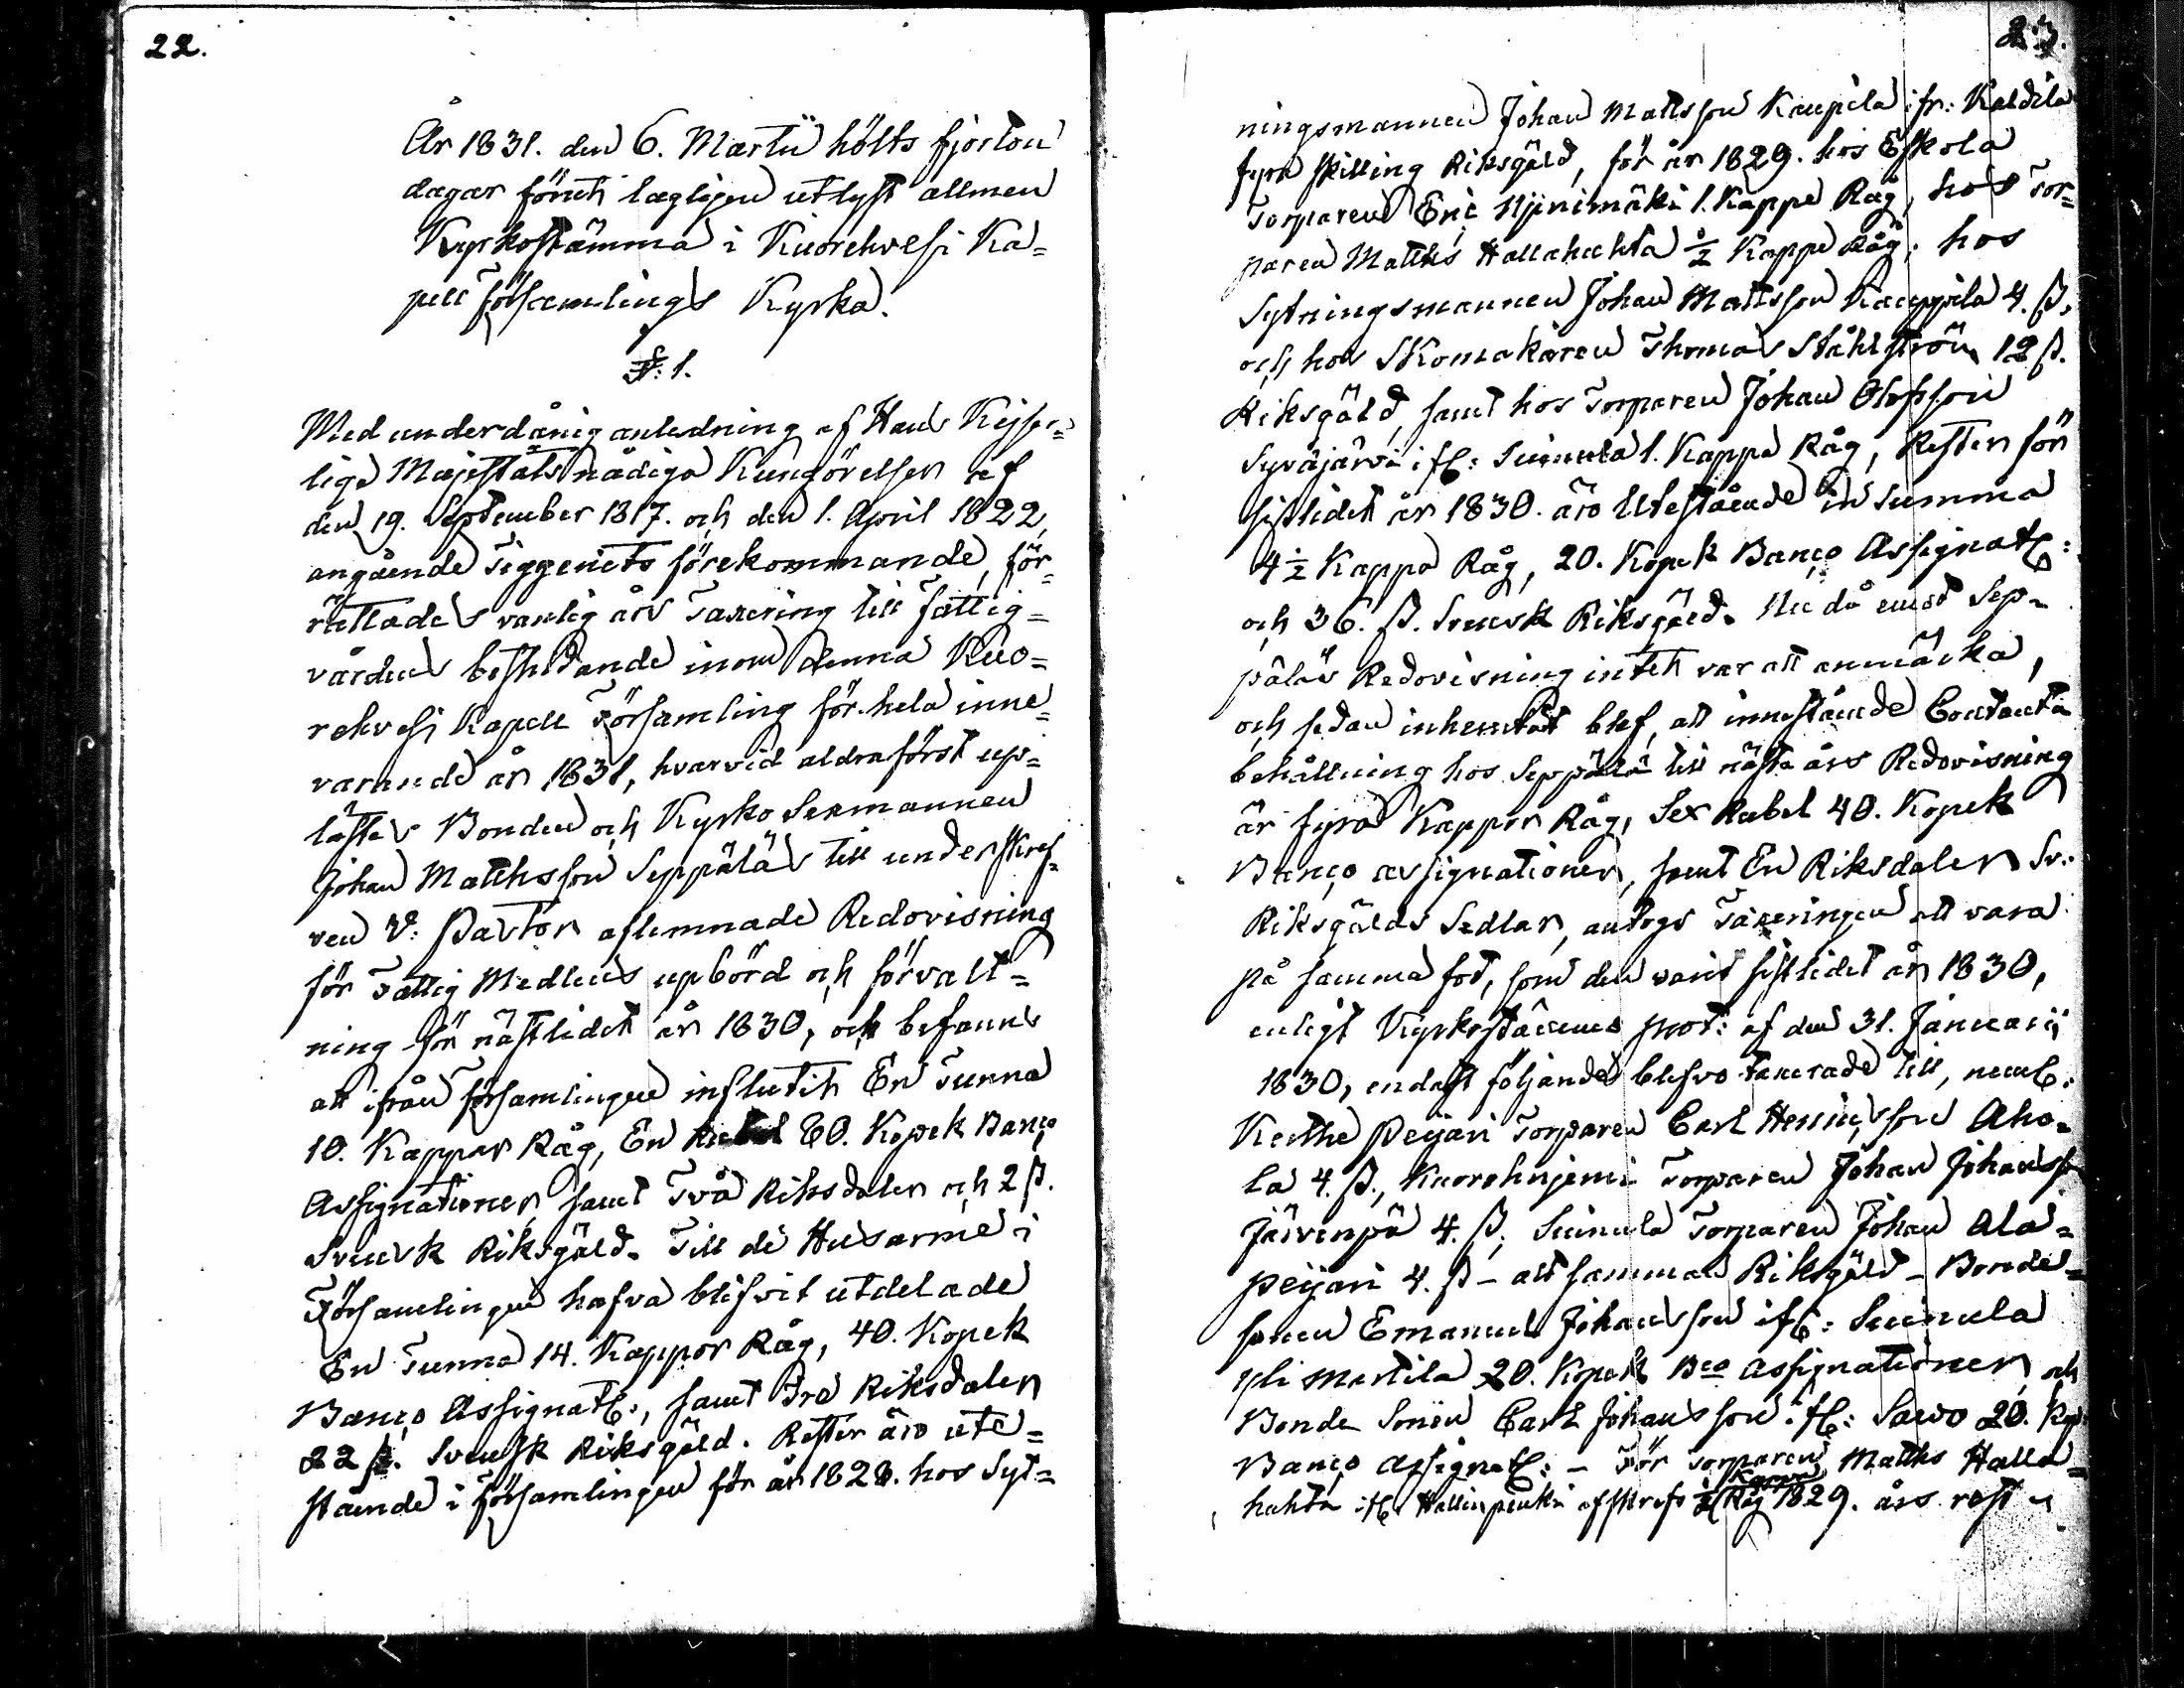 22.
År 1831. den 6. Martii hölts fjorton
dagar förut lagligen utlyst allmen
Kyrkostämma i Kuorehvesi Ka=
pell Församlings Kyrka.
§: 1.
Med underdånig anledning af Hans Kejser=
liga Majestäts nådiga Kungörelser af
den 19. September 1817. och den 1. April 1822,
angående Tiggeriets förekommande, för=
rättades vanlig års Taxering till Fattig=
vårdens bestridande inom denna Kuo=
rehvesi Kapell Församling för hela inne=
varande år 1831, hvarvid aldraförst up=
lästes Bonden och Kyrko Sexmannen
Johan Matthsson Seppäläs till underskref=
ven V: Pastor aflemnade Redovisning
för Fattig Medlens upbörd och förvalt=
ning för nästledit år 1830, och befanns
att ifrån Församlingen influtit En Tunna
10. Kappar Råg, En Rubel 60. Kopek Banço
Assignationer, samt Två Riksdaler och 2 ß.
Svensk Riksgäld. Till de Husarme i
Församlingen hafva blifvit utdelade
En Tunna 14. Kappor Råg, 40. Kopek
Banço Assignat:, samt Tre Riksdaler
22 ß. Svensk Riksgäld. Rester äro ute=
stående i Församlingen för år 1828. hos Syt=
23.
ningsmannen Johan Mattsson Kaupila ifr: Kaldila
fyra skilling Riksgäld, för år 1829. hos Eskola
Torparen Eric Njinimäki 1. Kappe Råg, hos Tor=
paren Matths Hallahuhta ½ Kappe Råg, hos
Sytningsmannen Johan Mattsson Kauppila 4. ß,
och hos Skomakaren Thomas Ståhlström 12 ß.
Riksgäld, samt hos Torparen Johan Olofsson
Syväjärvi if: Suinula 1. Kappe Råg, Rester för
sistledit år 1830. äro Utestående in Summa
4 ½ Kappa Råg, 20. Kopek Banço Assignat:
och 36. ß. Svensk Riksgäld. Nu då emot Sep=
päläs Redovisning intet var att anmärka,
och sedan inhemtat blef, att innestående Contanta
behållning hos Seppälä till nästa års Redovisning
är fyra Kappor Råg, Sex Rubel 40. Kopek
Banço assignationer, samt En Riksdaler Sv:
Riksgälds Sedlar, antogs Taxeringen att vara
på samma fot, som den varit sistledit år 1830,
enligt Kyrkostämmo prot: af den 31. Januarii
1830, endast följande blefvo taxerade till, neml:
Keithe Peijari Torparen Carl Henricsson Aho=
la 4. ß., Kuorehnjemi Torparen Johan Johanss
Järvenpä 4. ß, Suinula Torparen Johan Ala=
peijari 4. ß – allt samman Riksgäld – Bonde=
sonen Emanuel Johansson if: Suinula
yli Martila 20. Kopek Bco Assignationer, och
Bonde Sonen Carl Johansson if: Sawo 20. Kop
Banço Assignat: – För Torparen Matths Halla=
huhta if: Hallinpenki afskrefs ½ Kappe Råg 1829. års rest